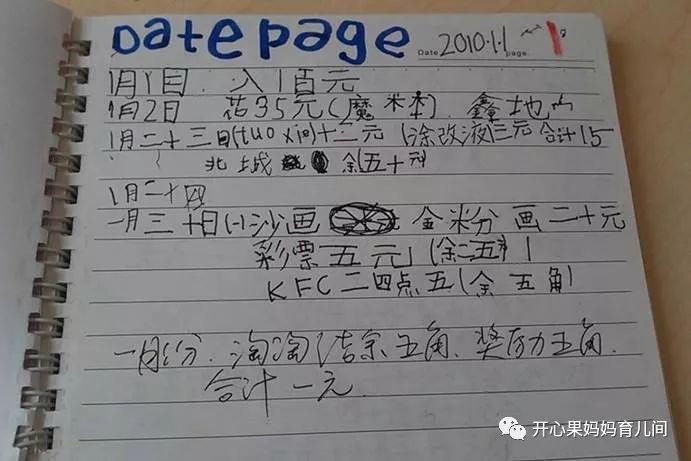 Date page Date 2010.1.1 page 1
1月1日. 入1百元
1月2日 花35元(魔米本). 鑫地
1月二十三日(tuo xie)十二元 (涂改液)三元 合计15
北城 余(五十元)
1月二十四
一月三十日(1)沙画 金粉画二十元
彩票五元 (余二五元)
KFC二四点五(余五角)
一月份. 淘淘结余五角. 奖历五角.
合计一元
开心果妈妈育儿间